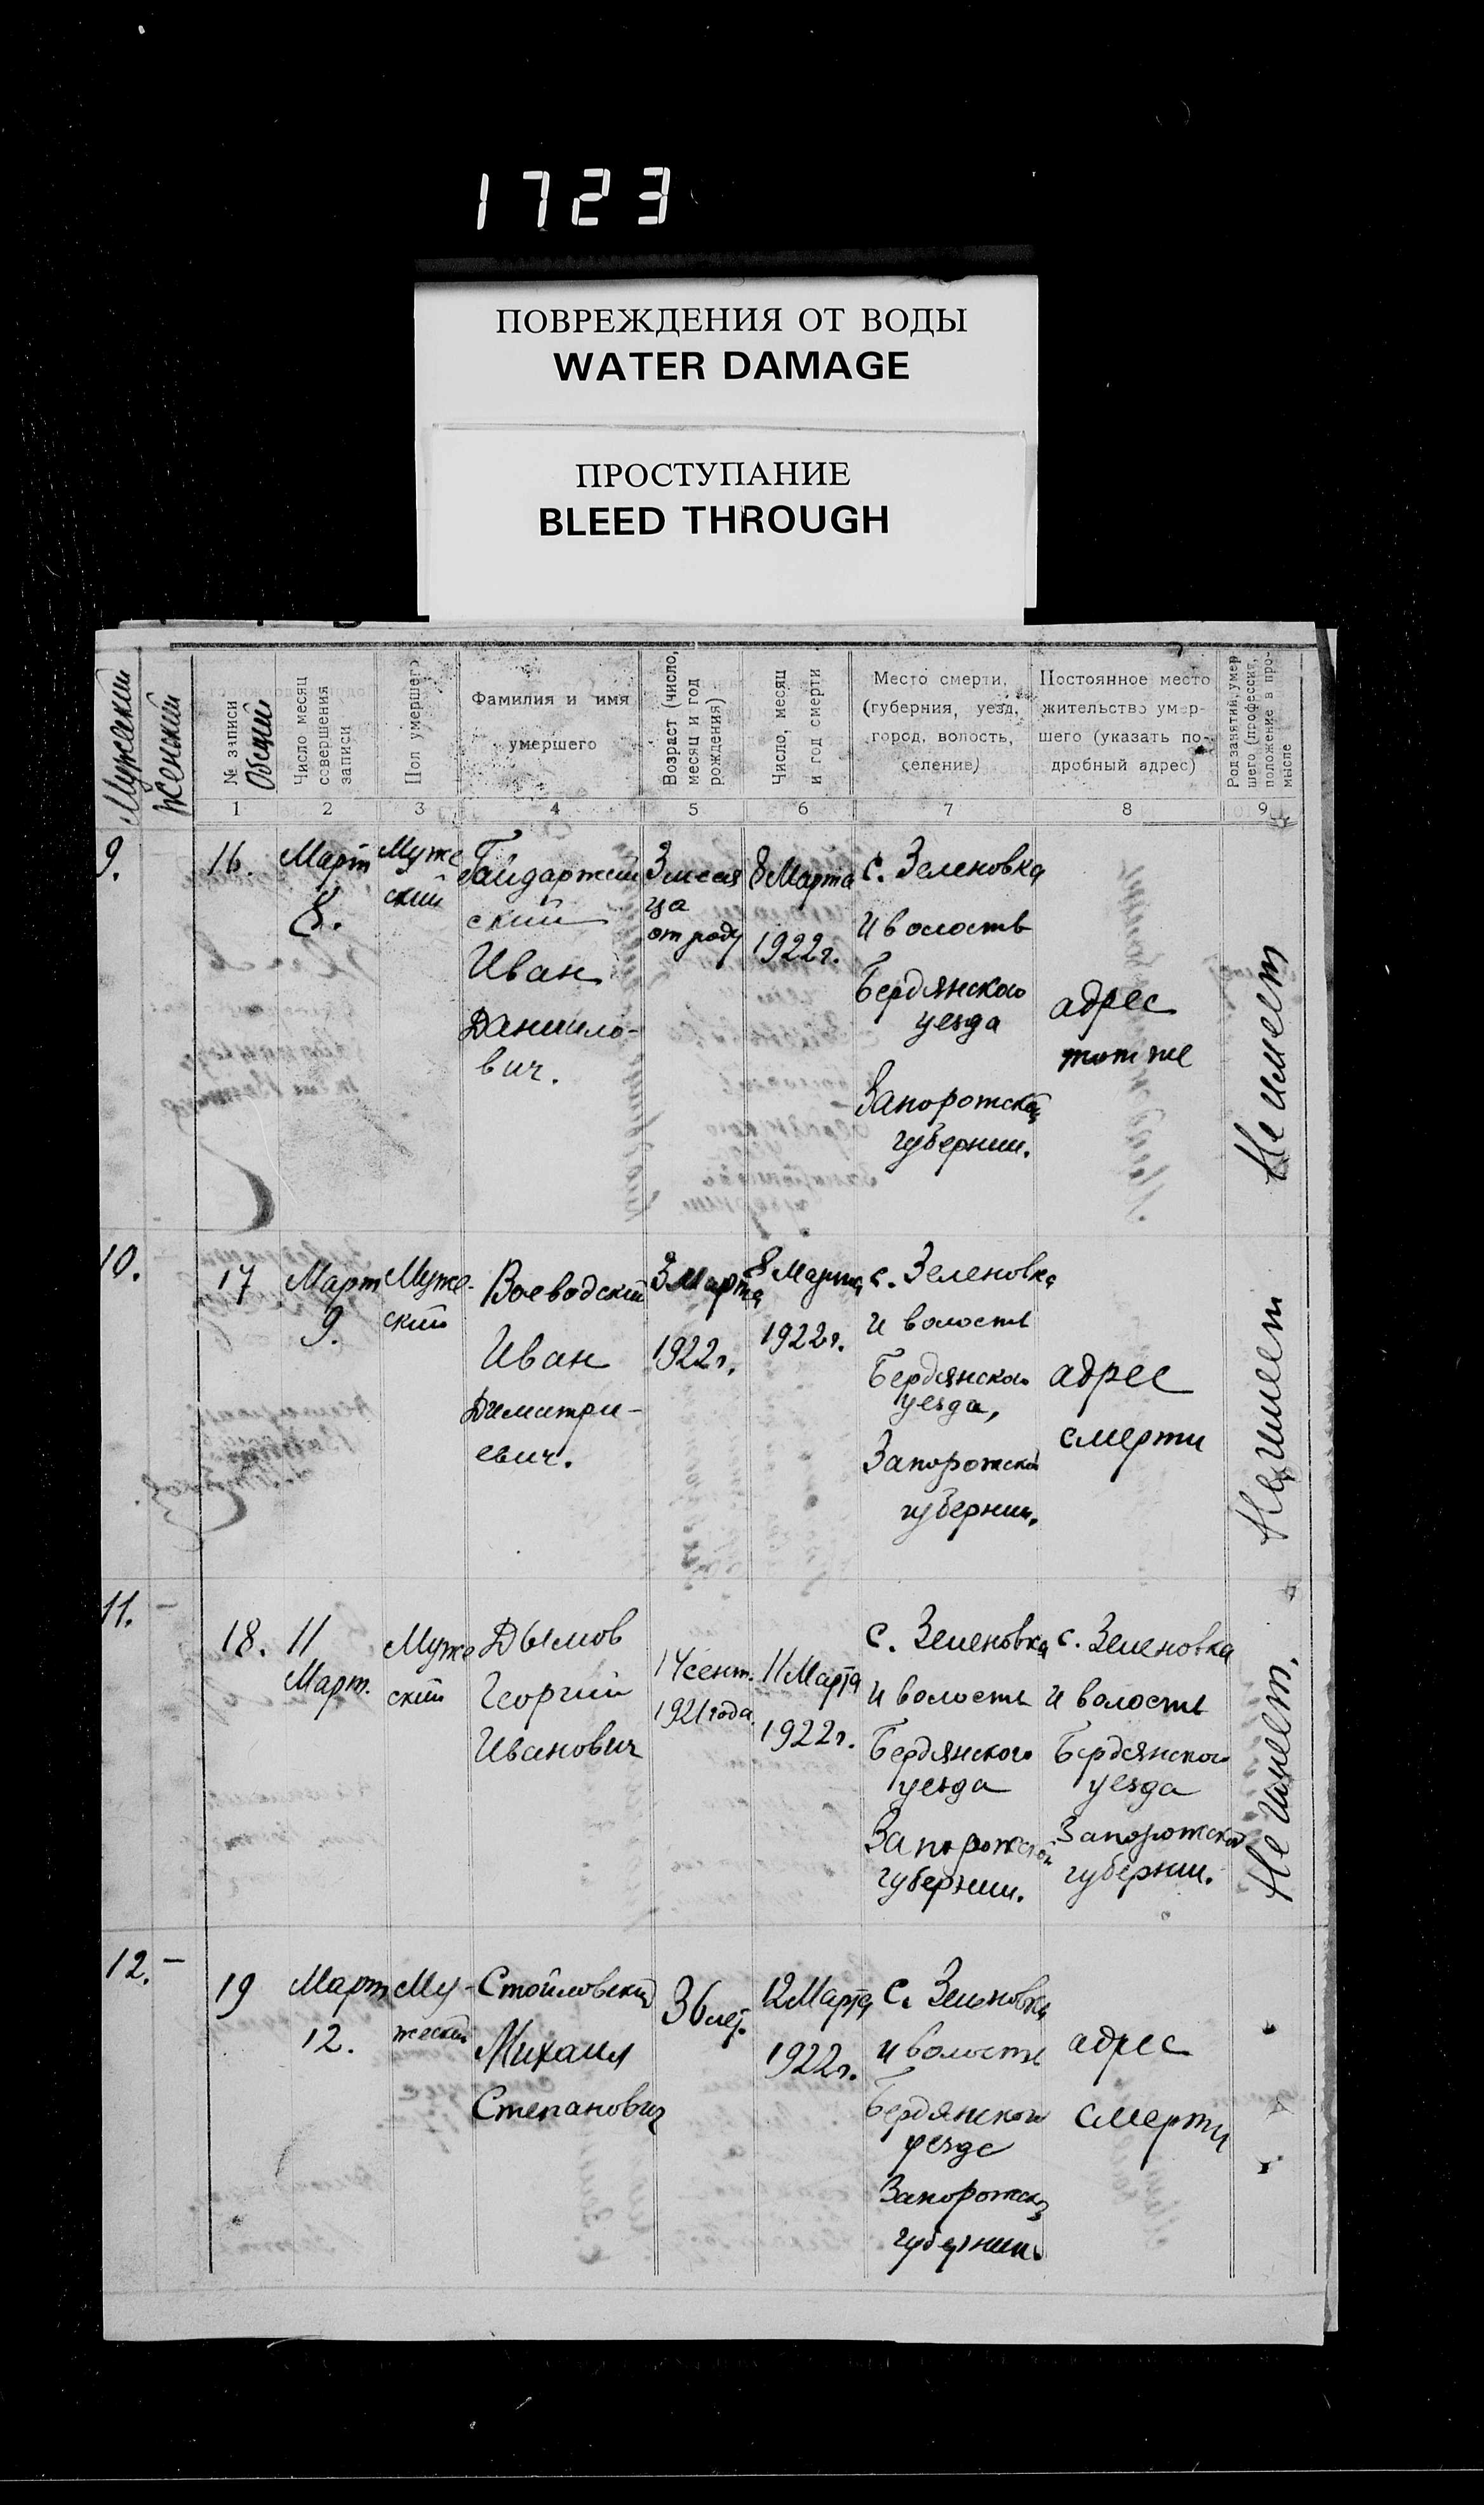 1723
ПОВРЕЖДЕНИЯ ОТ ВОДЫ
WATER DAMAGE
ПРОСТУПАНИЕ
BLEED THROUGH
Мужеский
Женский
№ записи
Общий
Число месяц
совершения
записи
Пол умершего
Фамилия и имя
умершего
Возраст (число,
месяц и год
рождения)
Число, месяц
и год смерти
Место смерти,
(губерния, уезд,
город, волость,
селение)
Постоянное место
жительство умер-
шего (указать по-
дробный адрес)
Род занятий, умер
шего (профессия,
положение в про-
мысле
1 2 3 4 5 6 7 8 9
9.
16.
Март
8.
Муже
ский
Гайдаржий
ский
Иван
Данило-
вич.
3 меся
ца
от роду
8 Марта
1922г.
с. Зеленовка
и волость
Бердянского
уезда
Запорожской
губернии.
адрес
тот же
Не имеет
10.
17
Март
9.
Муже-
ский
Воеводский
Иван
Димитри-
евич.
3 Марта
1922г.
8 Марта
1922г.
с. Зеленовка
и волость
Бердянского
уезда,
Запорожской
губернии.
адрес
смерти
Не имеет
11. -
18.
11
Март.
Муже
ский
Дымов
Георгий
Иванович
14 сент.
1921 года.
11 Марта
1922г.
с. Зеленовка
и волость
Бердянского
уезда
Запорожской
губернии.
с. Зеленовка
и волость
Бердянского
уезда
Запорожской
губернии.
Не имеет.
12. -
19
Март
12.
Му-
жеский
Стоиловский
Михаил
Степанович
36 лет.
12 Марта
1922г.
с. Зеленовка
и волость
Бердянского
уезде
Запорожской
губернии.
адрес
смерти